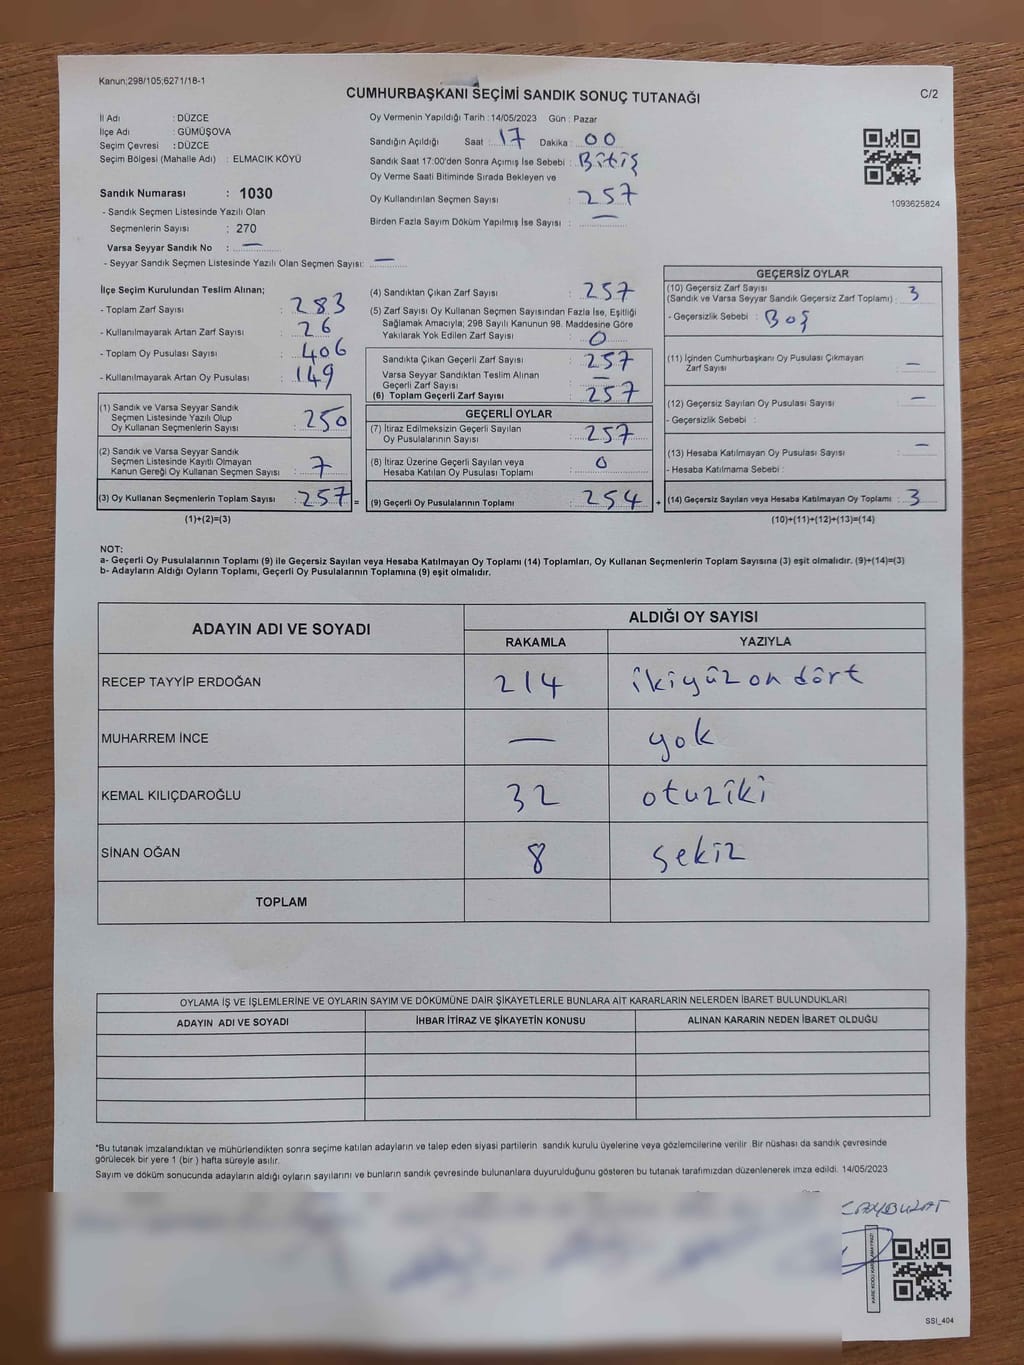 Kanun;298/105;6271/18-1
CUMHURBAŞKANI SEÇİMİ SANDIK SONUÇ TUTANAĞI
C/2
İl Adı : DÜZCE
İlçe Adı : GÜMÜŞOVA
Seçim Çevresi : DÜZCE
Seçim Bölgesi (Mahalle Adı) : ELMACIK KÖYÜ
Sandık Numarası : 1030
- Sandık Seçmen Listesinde Yazılı Olan
Seçmenlerin Sayısı : 270
Varsa Seyyar Sandık No : —
- Seyyar Sandık Seçmen Listesinde Yazılı Olan Seçmen Sayısı: —
Oy Vermenin Yapıldığı Tarih : 14/05/2023 Gün : Pazar
Sandığın Açıldığı Saat : 17 Dakika : 00
Sandık Saat 17:00'den Sonra Açımış İse Sebebi : Bitiş
Oy Verme Saati Bitiminde Sırada Bekleyen ve
Oy Kullandırılan Seçmen Sayısı : 257
Birden Fazla Sayım Döküm Yapılmış İse Sayısı : —
1093625824
İlçe Seçim Kurulundan Teslim Alınan;
- Toplam Zarf Sayısı : 283
- Kullanılmayarak Artan Zarf Sayısı : 26
- Toplam Oy Pusulası Sayısı : 406
- Kullanılmayarak Artan Oy Pusulası : 149
(1) Sandık ve Varsa Seyyar Sandık
Seçmen Listesinde Yazılı Olup
Oy Kullanan Seçmenlerin Sayısı : 250
(2) Sandık ve Varsa Seyyar Sandık
Seçmen Listesinde Kayıtlı Olmayan
Kanun Gereği Oy Kullanan Seçmen Sayısı : 7
(3) Oy Kullanan Seçmenlerin Toplam Sayısı : 257 =
(1)+(2)=(3)
(4) Sandıktan Çıkan Zarf Sayısı : 257
(5) Zarf Sayısı Oy Kullanan Seçmen Sayısından Fazla İse, Eşitliği
Sağlamak Amacıyla; 298 Sayılı Kanunun 98. Maddesine Göre
Yakılarak Yok Edilen Zarf Sayısı : 0
Sandıkta Çıkan Geçerli Zarf Sayısı : 257
Varsa Seyyar Sandıktan Teslim Alınan
Geçerli Zarf Sayısı : —
(6) Toplam Geçerli Zarf Sayısı : 257
GEÇERLİ OYLAR
(7) İtiraz Edilmeksizin Geçerli Sayılan
Oy Pusulalarının Sayısı : 257
(8) İtiraz Üzerine Geçerli Sayılan veya
Hesaba Katılan Oy Pusulası Toplamı : 0
(9) Geçerli Oy Pusulalarının Toplamı : 254 +
GEÇERSİZ OYLAR
(10) Geçersiz Zarf Sayısı
(Sandık ve Varsa Seyyar Sandık Geçersiz Zarf Toplamı) : 3
- Geçersizlik Sebebi : Boş
(11) İçinden Cumhurbaşkanı Oy Pusulası Çıkmayan
Zarf Sayısı : —
(12) Geçersiz Sayılan Oy Pusulası Sayısı : —
- Geçersizlik Sebebi :
(13) Hesaba Katılmayan Oy Pusulası Sayısı : —
- Hesaba Katılmama Sebebi :
(14) Geçersiz Sayılan veya Hesaba Katılmayan Oy Toplamı : 3
(10)+(11)+(12)+(13)=(14)
NOT:
a- Geçerli Oy Pusulalarının Toplamı (9) ile Geçersiz Sayılan veya Hesaba Katılmayan Oy Toplamı (14) Toplamları, Oy Kullanan Seçmenlerin Toplam Sayısına (3) eşit olmalıdır. (9)+(14)=(3)
b- Adayların Aldığı Oyların Toplamı, Geçerli Oy Pusulalarının Toplamına (9) eşit olmalıdır.
ADAYIN ADI VE SOYADI
ALDIĞI OY SAYISI
RAKAMLA YAZIYLA
RECEP TAYYİP ERDOĞAN 214 ikiyüz on dört
MUHARREM İNCE — yok
KEMAL KILIÇDAROĞLU 32 otuziki
SİNAN OĞAN 8 sekiz
TOPLAM
OYLAMA İŞ VE İŞLEMLERİNE VE OYLARIN SAYIM VE DÖKÜMÜNE DAİR ŞİKAYETLERLE BUNLARA AİT KARARLARIN NELERDEN İBARET BULUNDUKLARI
ADAYIN ADI VE SOYADI İHBAR İTİRAZ VE ŞİKAYETİN KONUSU ALINAN KARARIN NEDEN İBARET OLDUĞU
*Bu tutanak imzalandıktan ve mühürlendikten sonra seçime katılan adayların ve talep eden siyasi partilerin sandık kurulu üyelerine veya gözlemcilerine verilir. Bir nüshası da sandık çevresinde
görülecek bir yere 1 (bir ) hafta süreyle asılır.
Sayım ve döküm sonucunda adayların aldığı oyların sayılarını ve bunların sandık çevresinde bulunanlara duyurulduğunu gösteren bu tutanak tarafımızdan düzenlenerek imza edildi. 14/05/2023
SSI_404